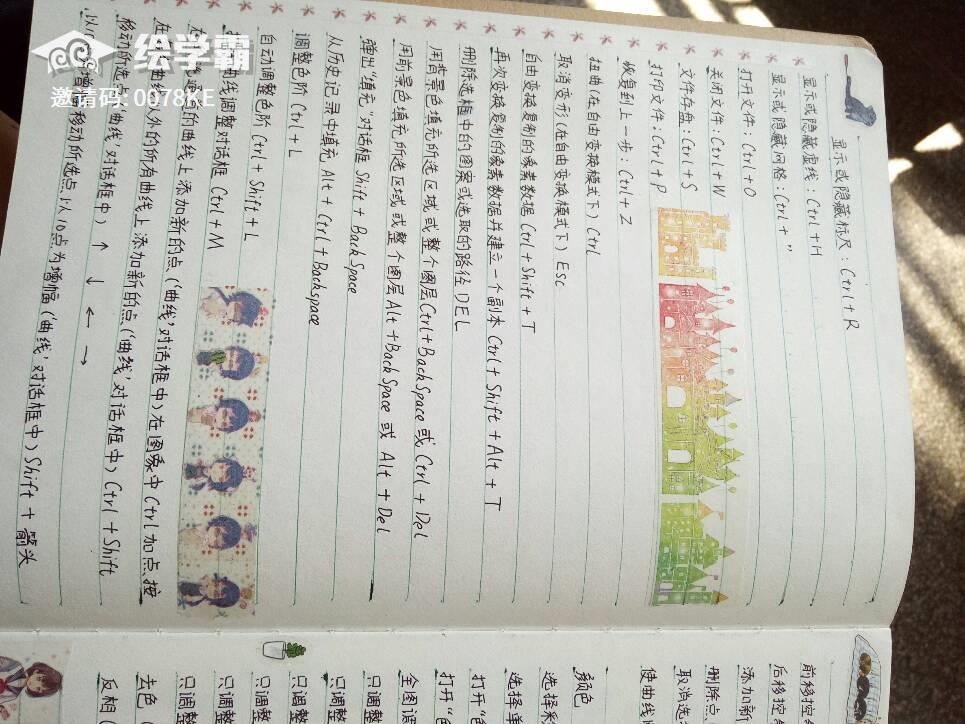 绘学霸
邀请码: 0078KE
显示或隐藏标尺：Ctrl+R
显示或隐藏虚线：Ctrl+H
显示或隐藏网格：Ctrl+"
打开文件：Ctrl+O
关闭文件：Ctrl+W
文件存盘：Ctrl+S
打印文件：Ctrl+P
恢复到上一步：Ctrl+Z
扭曲(在自由变换模式下) Ctrl
取消变形(在自由变换模式下) Esc
自由变换复制的象素数据 Ctrl+Shift+T
再次变换复制的象素数据并建立一个副本 Ctrl+Shift+Alt+T
删除选框中的图案或选取的路径 DEL
用背景色填充所选区域或整个图层Ctrl+BackSpace或Ctrl+Del
用前景色填充所选区域或整个图层Alt+BackSpace或Alt+Del
弹出"填充"对话框 Shift+BackSpace
从历史记录中填充 Alt+Ctrl+Backspace
调整色阶 Ctrl+L
自动调整色阶 Ctrl+Shift+L
曲线调整对话框 Ctrl+M
的曲线上添加新的点('曲线'对话框中)在图象中Ctrl加点按
外的所有曲线上添加新的点('曲线'对话框中) Ctrl+Shift
移动所选点('曲线'对话框中) ↑ ↓ ← →
增幅移动所选点以10点为增幅('曲线'对话框中) Shift+箭头
前移控
后移控
添加新
删除点
取消选
使曲线
颜色
选择彩
选择单
打开
打开"色
全图调
只调整
只调整
只调整
只调整
只调整
只调整
去色(
反相(